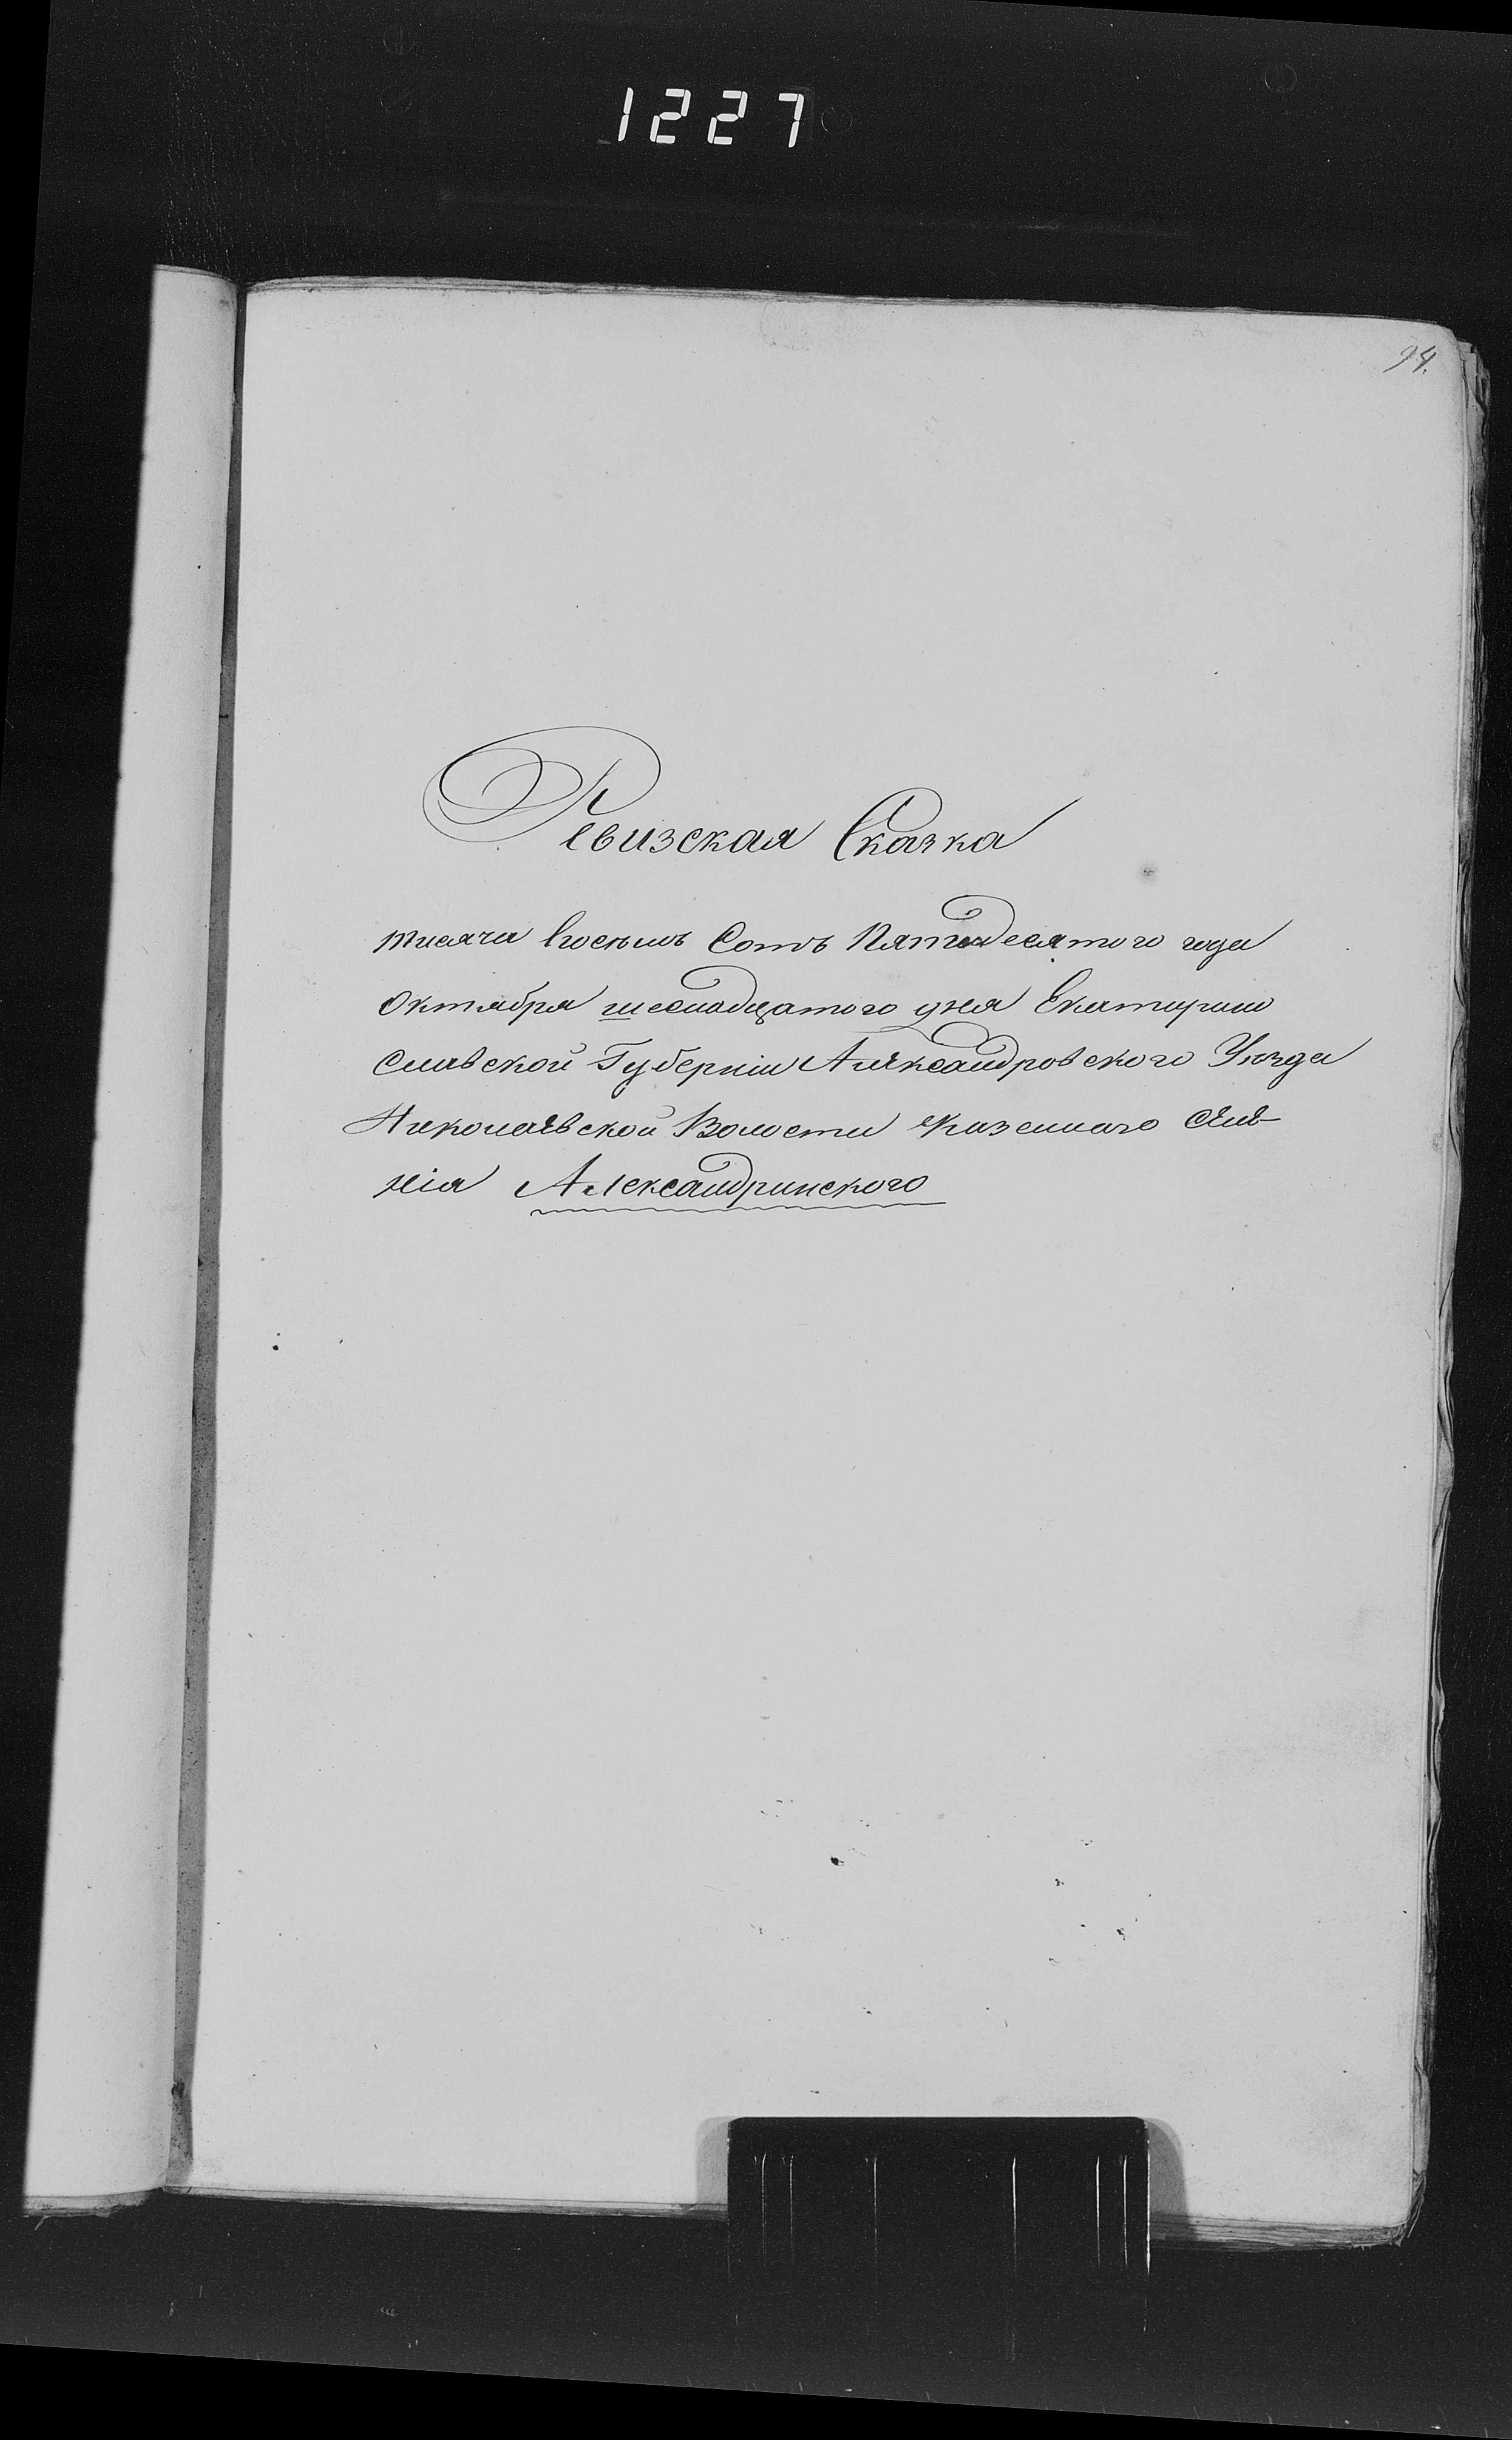 1227
94.
Ревизская Сказка
тисяча восемь Сотъ Пятидесятого года
Октября шеснадцатого дня Екатерино
славской Губерніи Александровского Уѣзда
Николаевской Волости казенного селе-
нія Александринского